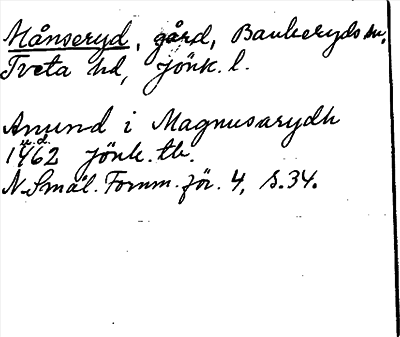 Månseryd, gård, Bankeryds sn,
Tveta hd, Jönk. l.
Anund i Magnusarydh
u.d.
1462 Jönk. tb.
N. Smål. Fornm. för. 4, s. 34.